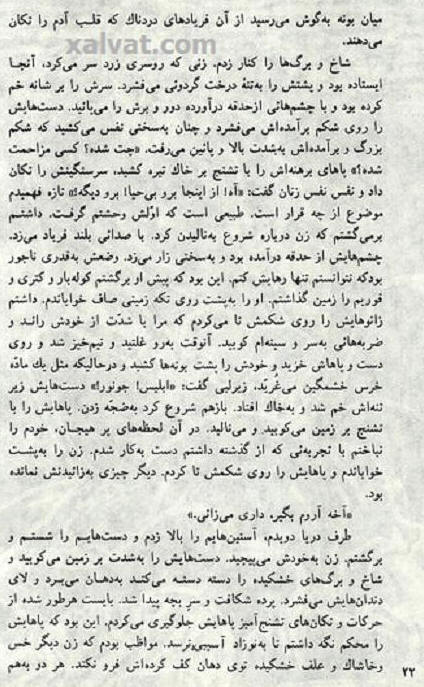 میان بوته به‌گوش می‌رسید از آن فریادهای دردناك که قلب آدم را تکان
می‌دهند.
xalvat.com
شاخ و برگ‌ها را کنار زدم. زنی که روسری زرد سر می‌کرد، آنجا
ایستاده بود و پشتش را به‌تنۀ درخت گردوئی می‌فشرد. سرش را بر شانه خم
کرده بود و با چشمهائی ازحدقه درآورده دور و برش را می‌پائید. دست‌هایش
را روی شکم برآمده‌اش می‌فشرد و چنان به‌سختی نفس می‌کشید که شکم
بزرگ و برآمده‌اش به‌شدت بالا و پائین می‌رفت. «چت شده؟ کسی مزاحمت
شده؟» پاهای برهنه‌اش را با تشنج بر خاك تیره کشید، سرسنگینش را تکان
داد و نفس نفس زنان گفت: «آه! از اینجا برو بی‌حیا! برو دیگه!» تازه فهمیدم
موضوع از چه قرار است. طبیعی است که اوّلش وحشتم گرفت. داشتم
برمی‌گشتم که زن دوباره شروع به‌نالیدن کرد. با صدائی بلند فریاد می‌زد.
چشم‌هایش از حدقه درآمده بود و به‌سختی زار می‌زد. وضعش به‌قدری ناجور
بودکه نتوانستم تنها رهایش کنم. این بود که پیش او برگشتم کوله‌بار و کتری و
قوریم را زمین گذاشتم. او را به‌پشت روی تکه زمینی صاف خواباندم. داشتم
زانوهایش را روی شکمش تا می‌کردم که مرا با شدّت از خودش راند و
ضربه‌هائی به‌سر و سینه‌ام کوبید. آنوقت به‌رو غلتید و نیم‌خیز شد و روی
دست و پاهاش خزید و خودش را پشت بوته‌ها کشید و درحالیکه مثل یك مادّه
خرس خشمگین می‌غرّید، زیرلبی گفت: «ابلیس! جونور!» دست‌هایش زیر
تنه‌اش خم شد و به‌خاك افتاد. بازهم شروع کرد به‌ضجّه زدن. پاهایش را با
تشنج بر زمین می‌کوبید و می‌نالید. در آن لحظه‌های پر هیجان، خودم را
نباختم با تجربه‌ئی که از گذشته داشتم دست به‌کار شدم. زن را به‌پشت
خواباندم و پاهایش را روی شکمش تا کردم. دیگر چیزی به‌زائیدنش نمانده
بود.
«آخه آروم بگیر. داری می‌زائی.»
طرف دریا دویدم، آستین‌هایم را بالا زدم و دست‌هایم را شستم و
برگشتم. زن به‌خودش می‌پیچید. دست‌هایش را به‌شدت بر زمین می‌کوبید و
شاخ و برگ‌های خشکیده را دسته دسته می‌کند به‌دهان می‌برد و لای
دندان‌هایش می‌فشرد. پرده شکافت و سرِ بچه پیدا شد. بایست هرطور شده از
حرکات و تکان‌های تشنج‌آمیز پاهایش جلوگیری می‌کردم. این بود که پاهایش
را محکم نگه داشتم تا به‌نوزاد آسیبی‌نرسد. مواظب بودم که زن دیگر خس
وخاشاك و علف خشکیده توی دهان کف کرده‌اش فرو نکند. هر دو به‌هم
۲۲